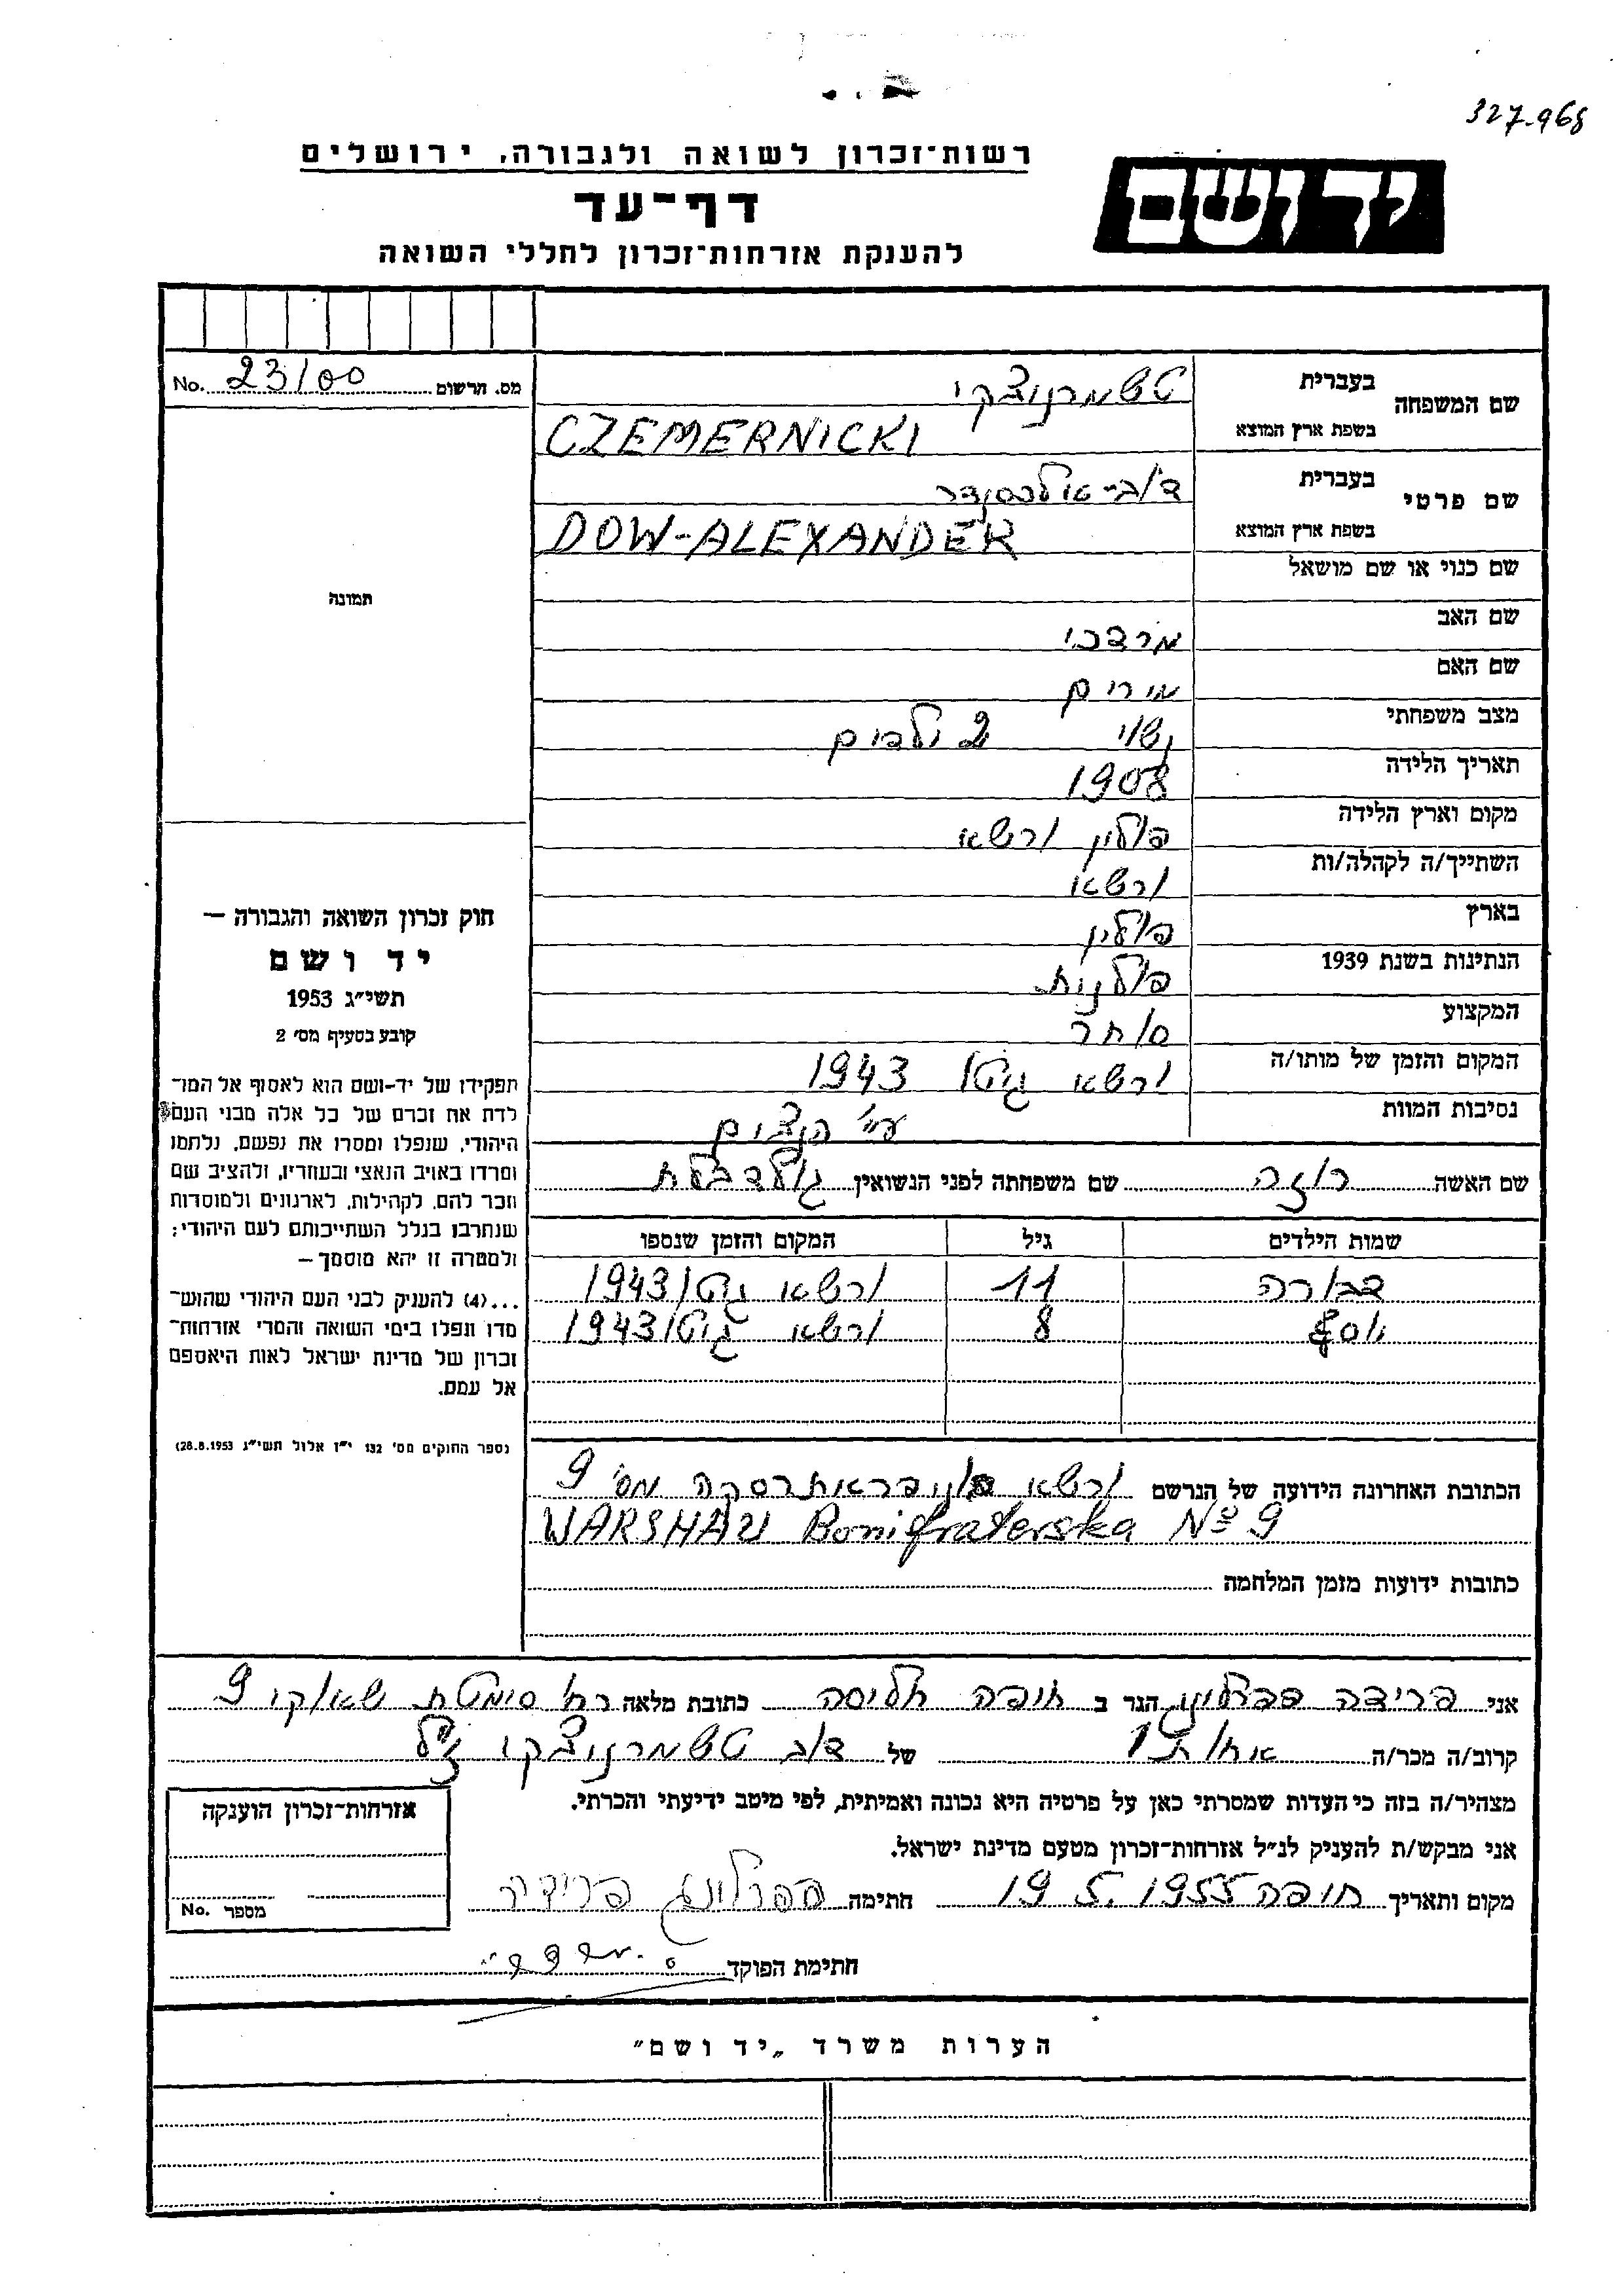 327.968
רשות-זכרון לשואה ולגבורה, ירושלים
יד ושם
דף-עד
להענקת אזרחות-זכרון לחללי השואה
מס. הרשום No. 23/00
שם המשפחה בעברית טשמרניצקי
בשפת ארץ המוצא CZEMERNICKI
שם פרטי בעברית דוב-אלכסנדר
בשפת ארץ המוצא DOW-ALEXANDER
שם כנוי או שם מושאל
שם האב מרדכי
שם האם מירים
מצב משפחתי נשוי 2 ילדים
תאריך הלידה 1908
מקום וארץ הלידה פולין ורשא
השתייך/ה לקהלה/ות ורשא
בארץ פולין
הנתינות בשנת 1939 פולנית
המקצוע סוחר
המקום והזמן של מותו/ה ורשא גיטו 1943
נסיבות המוות ע"י הנצים
שם האשה רוזה שם משפחתה לפני הנשואין גולדבלט
שמות הילדים גיל המקום והזמן שנספו
דבורה 11 ורשא גיטו 1943
יוסף 8 ורשא גיטו 1943
הכתובת האחרונה הידועה של הנרשם ורשא בוניפראטרסקה מס' 9
WARSHAU Bonifraterska No 9
כתובות ידועות מזמן המלחמה
תמונה
חוק זכרון השואה והגבורה —
יד ושם
תשי"ג 1953
קובע בסעיף מס' 2
תפקידן של יד-ושם הוא לאסוף אל המו-
לדת את זכרם של כל אלה מבני העם
היהודי, שנפלו ומסרו את נפשם, נלחמו
ומרדו באויב הנאצי ובעוזריו, ולהציב שם
וזכר להם, לקהילות, לארגונים ולמוסדות
שנחרבו בגלל השתייכותם לעם היהודי;
ולמטרה זו יהא מוסמך —
...(4) להעניק לבני העם היהודי שהוש-
מדו ונפלו בימי השואה והמרי אזרחות-
זכרון של מדינת ישראל לאות היאספם
אל עמם.
(ספר החוקים מס' 132 י"ז אלול תשי"ג 28.8.1953)
אני פרידה הגר ב חיפה חליסה כתובת מלאה רח' סימטת 9
קרוב/ה מכר/ה אחות של דוב טשמרניצקי ז"ל
מצהיר/ה בזה כי העדות שמסרתי כאן על פרטיה היא נכונה ואמיתית, לפי מיטב ידיעתי והכרתי.
אני מבקש/ת להעניק לנ"ל אזרחות-זכרון מטעם מדינת ישראל.
מקום ותאריך חיפה 19.5.1955 חתימה פרידה
חתימת הפוקד
אזרחות-זכרון הוענקה
מספר No.
הערות משרד „יד ושם"